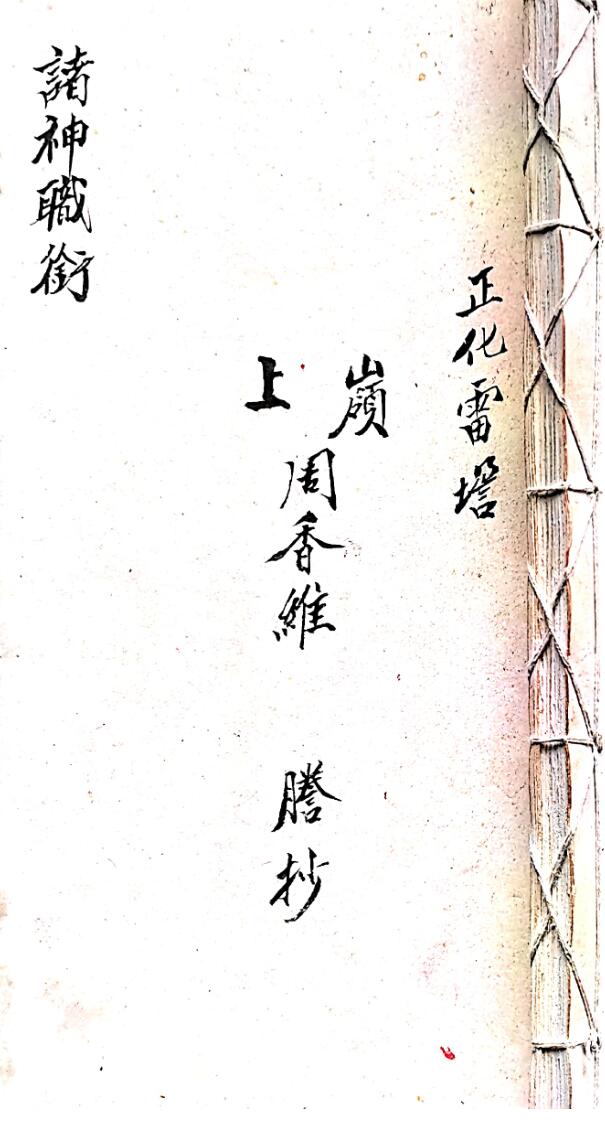 正化雷壋
嶺上
周香維 謄抄
諸神職銜